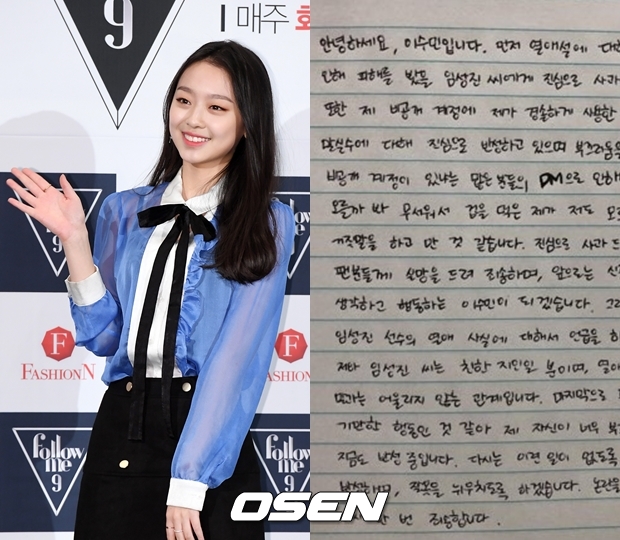 매주 화
9
FASHIONN
follow me 9
F
FASHIONN
follow me 9
follow me 9
OSEN
안녕하세요, 이수민입니다. 먼저 열애설에 대해
오해 피해를 받을 임성진 씨에게 진심으로 사과
또한 제 비공개 계정에 제가 경솔하게 사용한
말실수에 대해 진심으로 반성하고 있으며 부끄러움을
비공개 계정이 있냐는 많은 분들의 DM으로 인해
오를까 봐 무서워서 겁을 먹은 제가 저도 모르
거짓말을 하고 만 것 같습니다. 진심으로 사과 드
팬분들께 실망을 드려 죄송하며, 앞으로는 신
생각하고 행동하는 이수민이 되겠습니다. 그리
임성진 선수의 열애 사실에 대해서 언급을 하
저와 임성진 씨는 친한 지인일 뿐이며, 열애
과는 어울리지 않는 관계입니다. 마지막으로
기만한 행동인 것 같아 제 자신이 너무 부
지금도 반성 중입니다. 다시는 이런 일이 없도록
반성하며, 잘못을 뉘우치도록 하겠습니다. 논란을
한 번 죄송합니다.